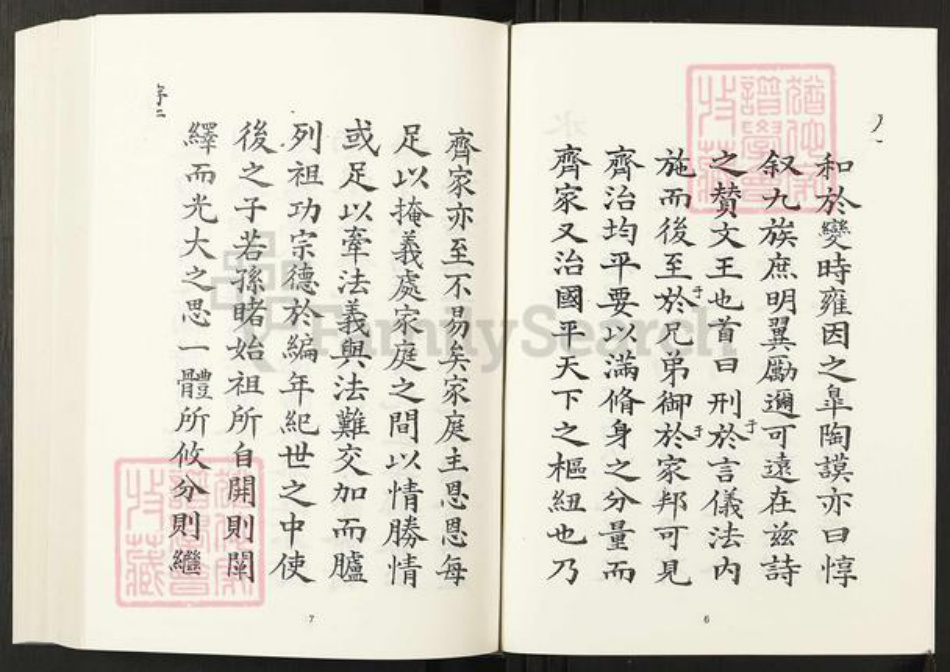 和於變時雍因之臯陶謨亦曰惇
叙九族庶明翼勵邇可遠在兹詩
之贊文王也首曰刑於言儀法内
于
施而後至於兄弟御於家邦可見
于
于
齊治均平要以滿脩身之分量而
齊家又治國平天下之樞紐也乃
6
齊家亦至不易矣家庭主恩恩每
足以掩義處家庭之間以情勝情
或足以牽法義與法難交加而臚
列祖功宗德於編年紀世之中使
後之子若孫睹始祖所自開則闡
繹而光大之思一體所攸分則繼
序二
7
FamilySearch